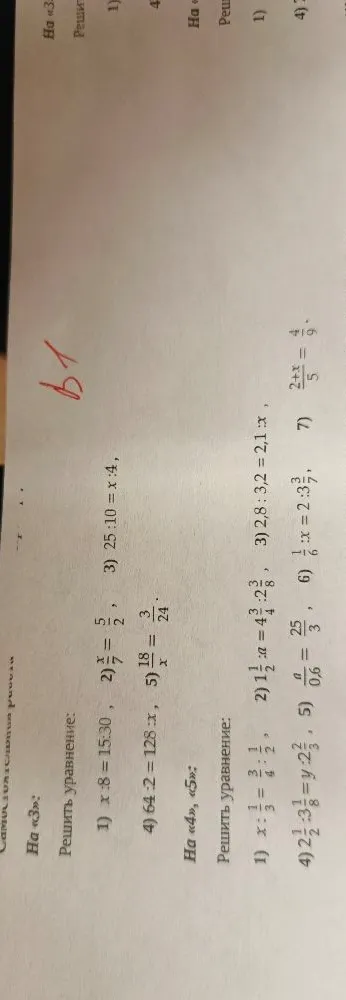 На «3»:
Решить уравнение:
1) x :8 = 15:30 , 2) x/7 = 5/2 , 3) 25 :10 = x :4 ,
4) 64 :2 = 128 :x , 5) 18/x = 3/24 .
На «4», «5»:
Решить уравнение:
1) x : 1/3 = 3/4 : 1/2 , 2) 1 1/2 :a = 4 3/4 :2 3/8 , 3) 2,8 : 3,2 = 2,1 :x ,
4) 2 1/2 :3 1/8 = y :2 2/3 , 5) a/0,6 = 25/3 , 6) 1/6 :x = 2 :3 3/7 , 7) 2+x/5 = 4/9 .
в 1
На «3»
1)
На «
1)
4)